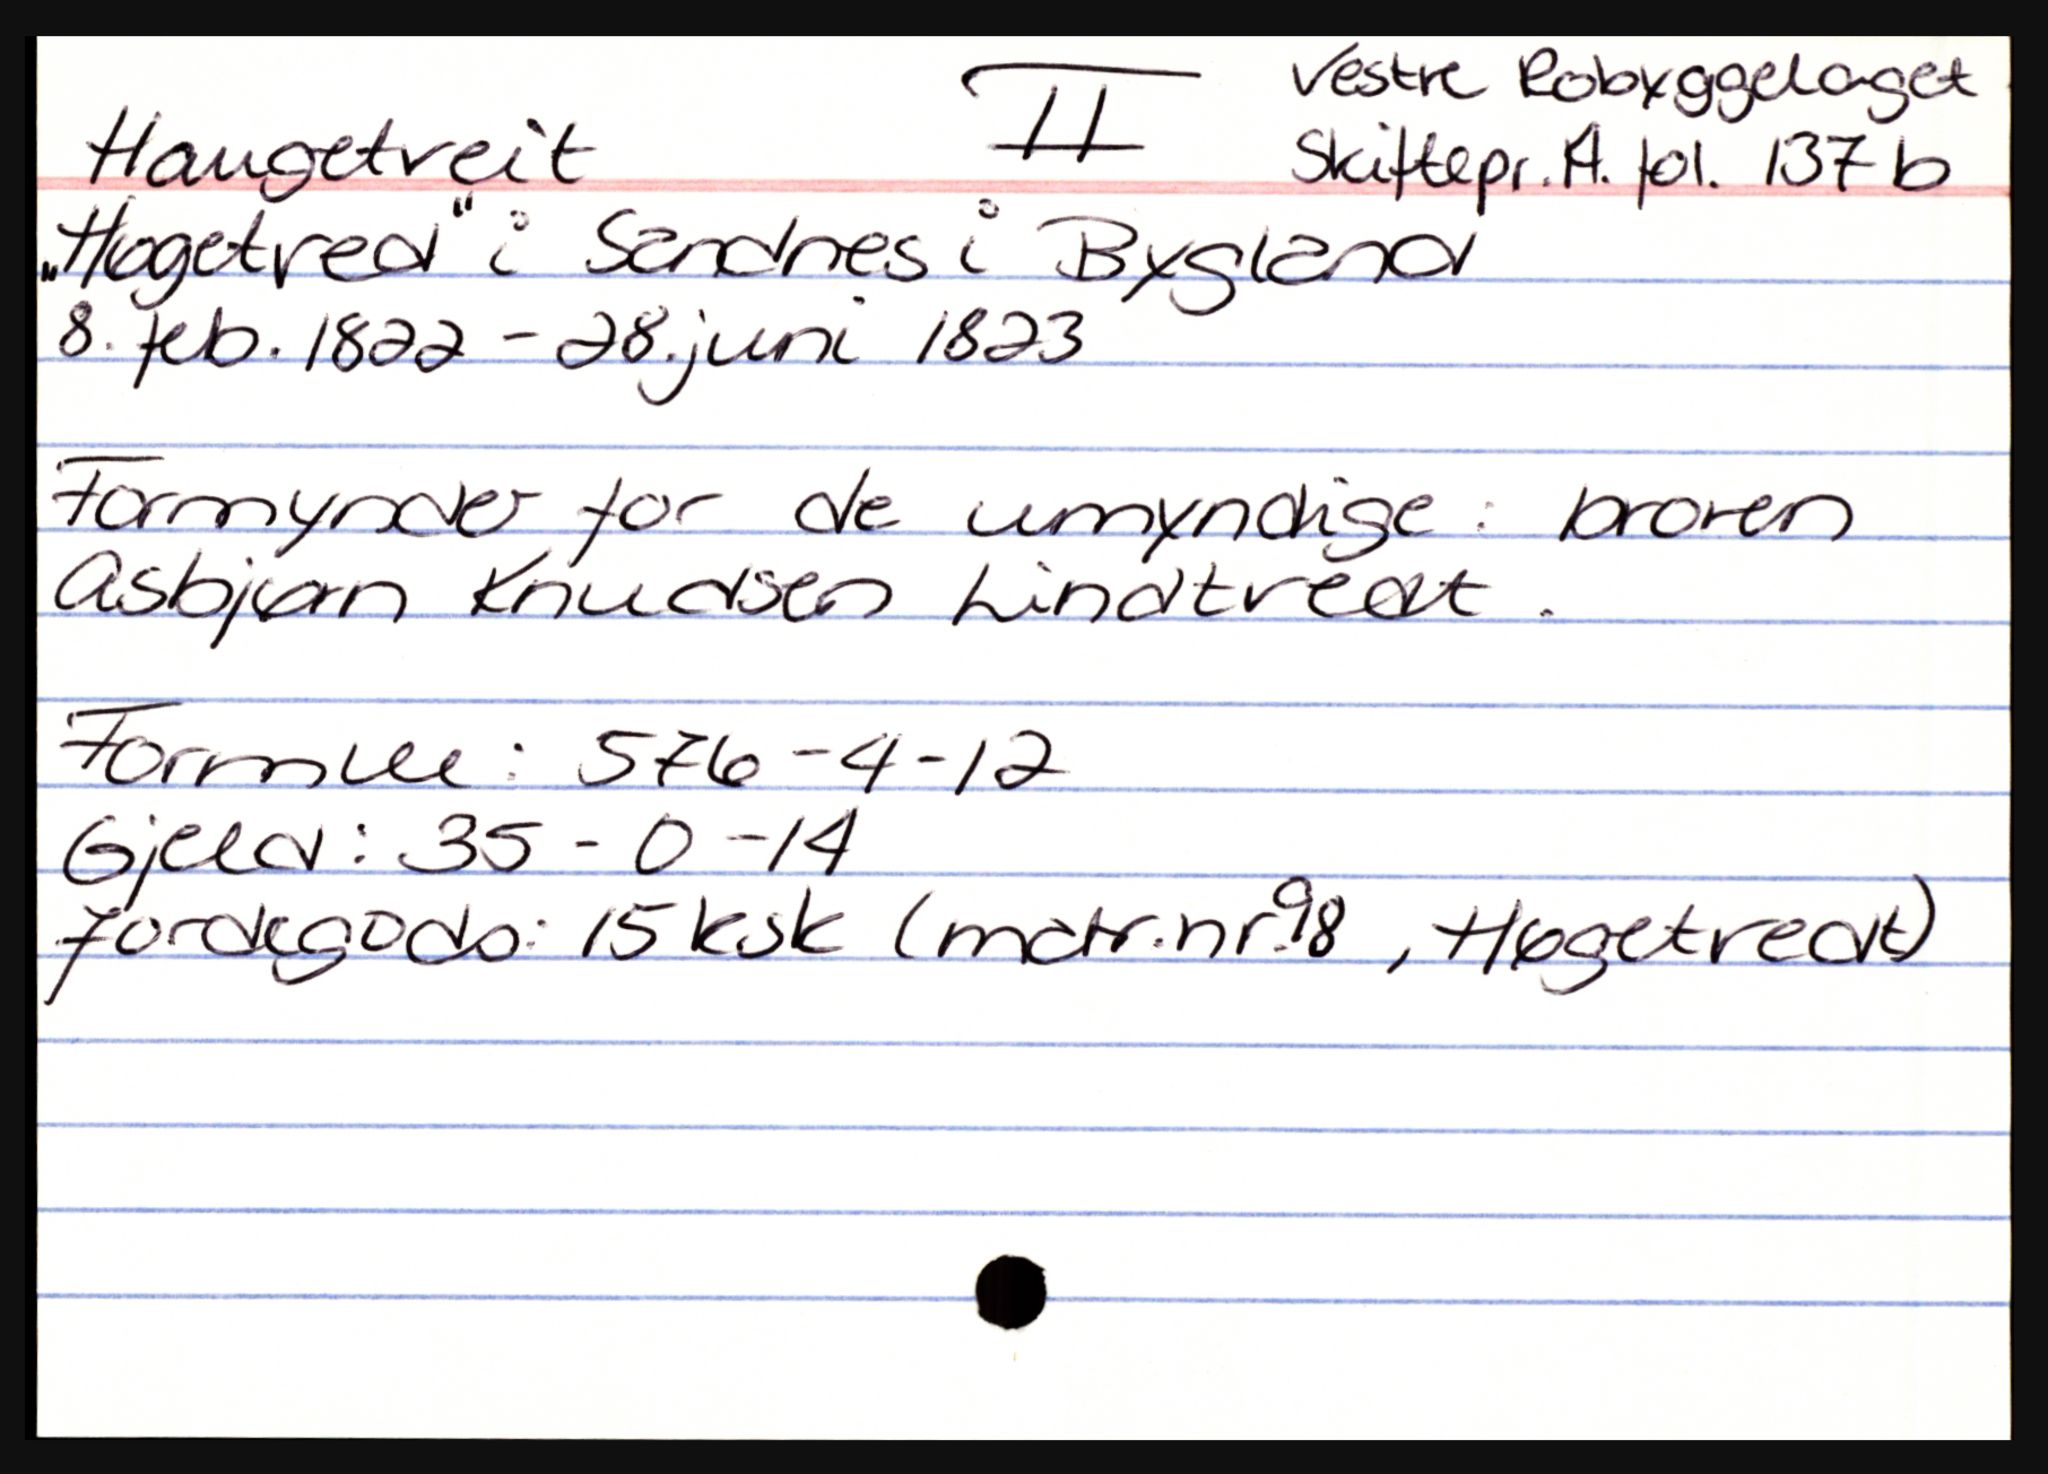 Haugetreit
II
Vestre Robyggelaget
Skiftepr. A. fol. 137 b
„Høgetred" i Sandnes i Bygland
8. feb. 1822 - 28. juni 1823
Formynder for de umyndige: broren
Asbjørn Knudsen Lindtredt.
Formue: 576-4-12
Gjeld: 35-0-14
Jordegods: 15 ksk (matr.nr. 98, Høgetredt)